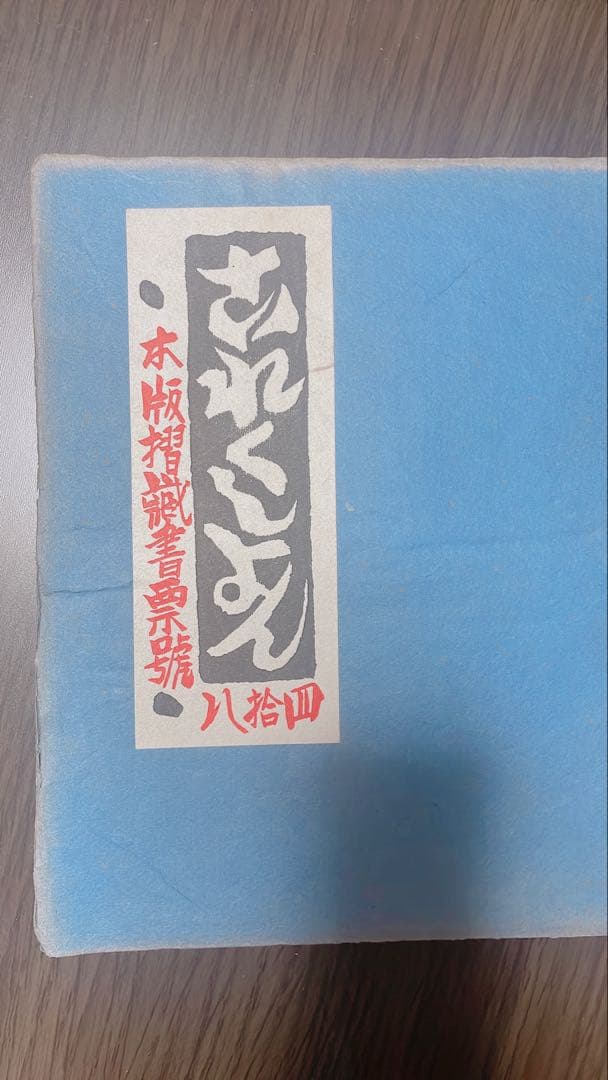 これくしよん
木版摺藏書票號
八拾四